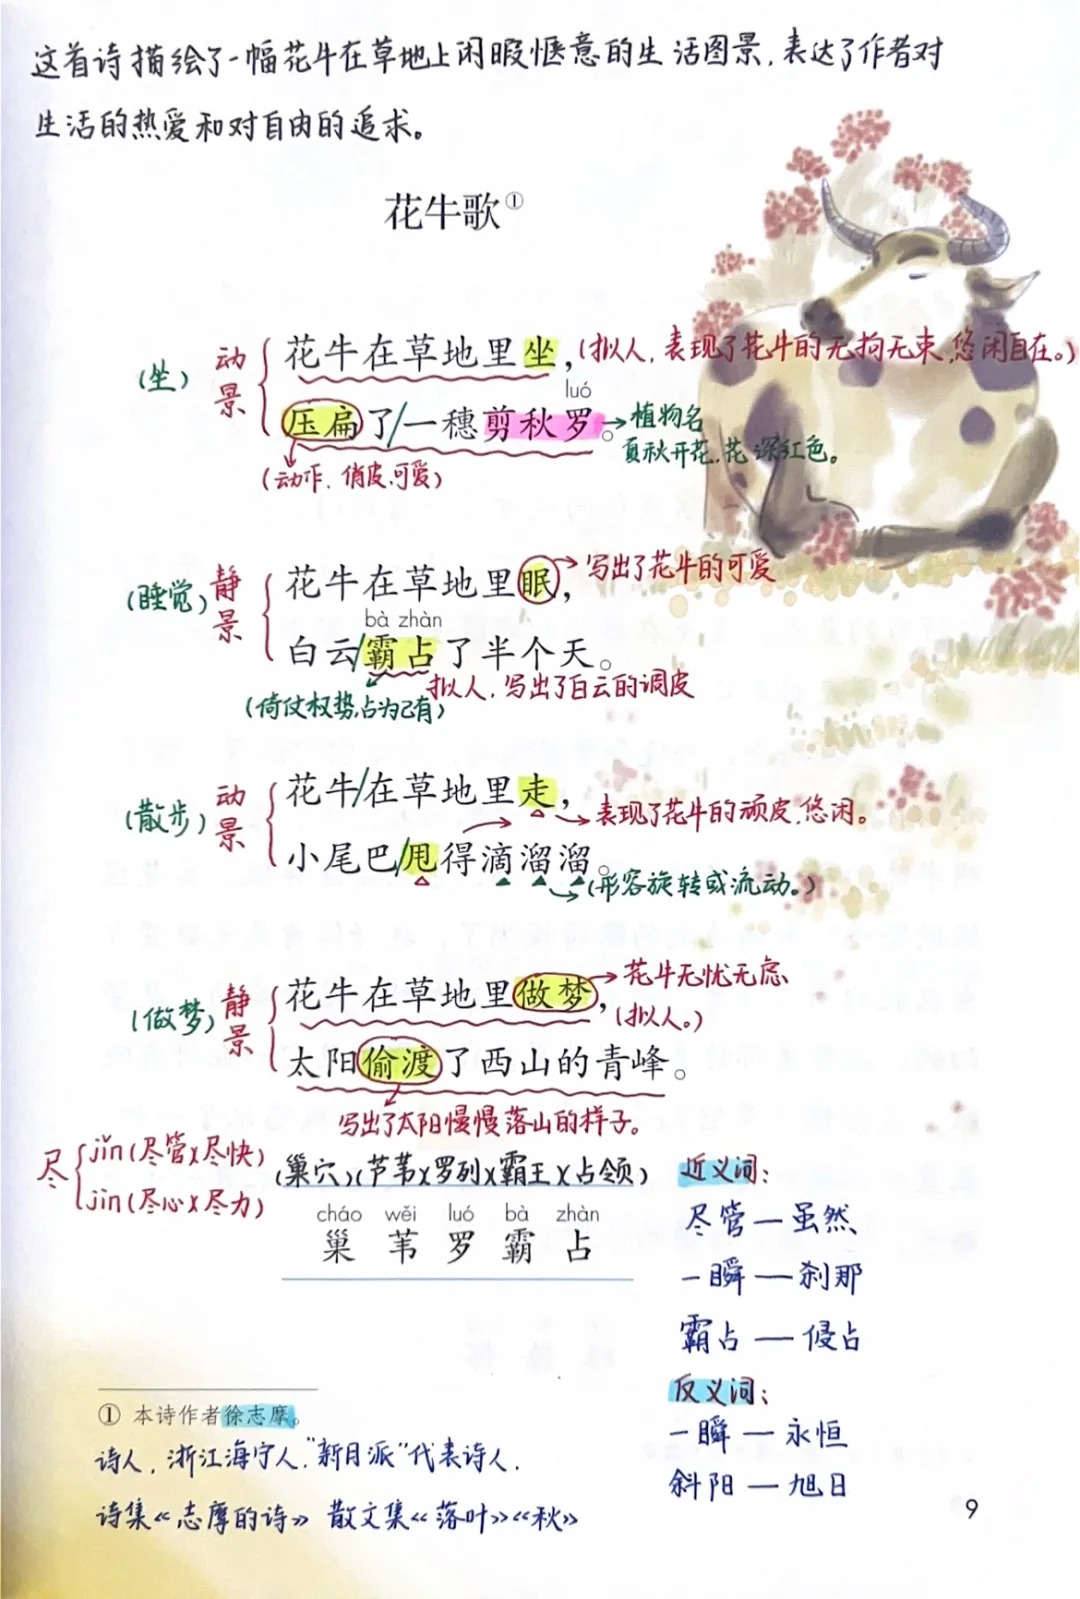 这首诗描绘了一幅花牛在草地上闲暇惬意的生活图景,表达了作者对
生活的热爱和对自由的追求。
花牛歌①
(坐) 动景 花牛在草地里坐, (拟人,表现了花牛的无拘无束,悠闲自在。)
luó
压扁了/一穗剪秋罗。→植物名
夏秋开花,花深红色。
(动作,俏皮可爱)
(睡觉) 静景 花牛在草地里眠, →写出了花牛的可爱
bà zhàn
白云/霸占了半个天。
拟人,写出了白云的调皮
(倚仗权势,占为己有)
(散步) 动景 花牛/在草地里走,
→表现了花牛的顽皮,悠闲。
小尾巴/甩得滴溜溜。
→(形容旋转或流动。)
(做梦) 静景 花牛在草地里做梦, →花牛无忧无虑
(拟人。)
太阳偷渡了西山的青峰。
写出了太阳慢慢落山的样子。
尽 jǐn(尽管)(尽快)
jìn(尽心)(尽力)
(巢穴)(芦苇)(罗列)(霸王)(占领)
cháo wěi luó bà zhàn
巢 苇 罗 霸 占
近义词:
尽管—虽然
一瞬—刹那
霸占—侵占
反义词:
一瞬—永恒
斜阳—旭日
① 本诗作者徐志摩。
诗人,浙江海宁人,“新月派”代表诗人,
诗集《志摩的诗》 散文集《落叶》《秋》
9